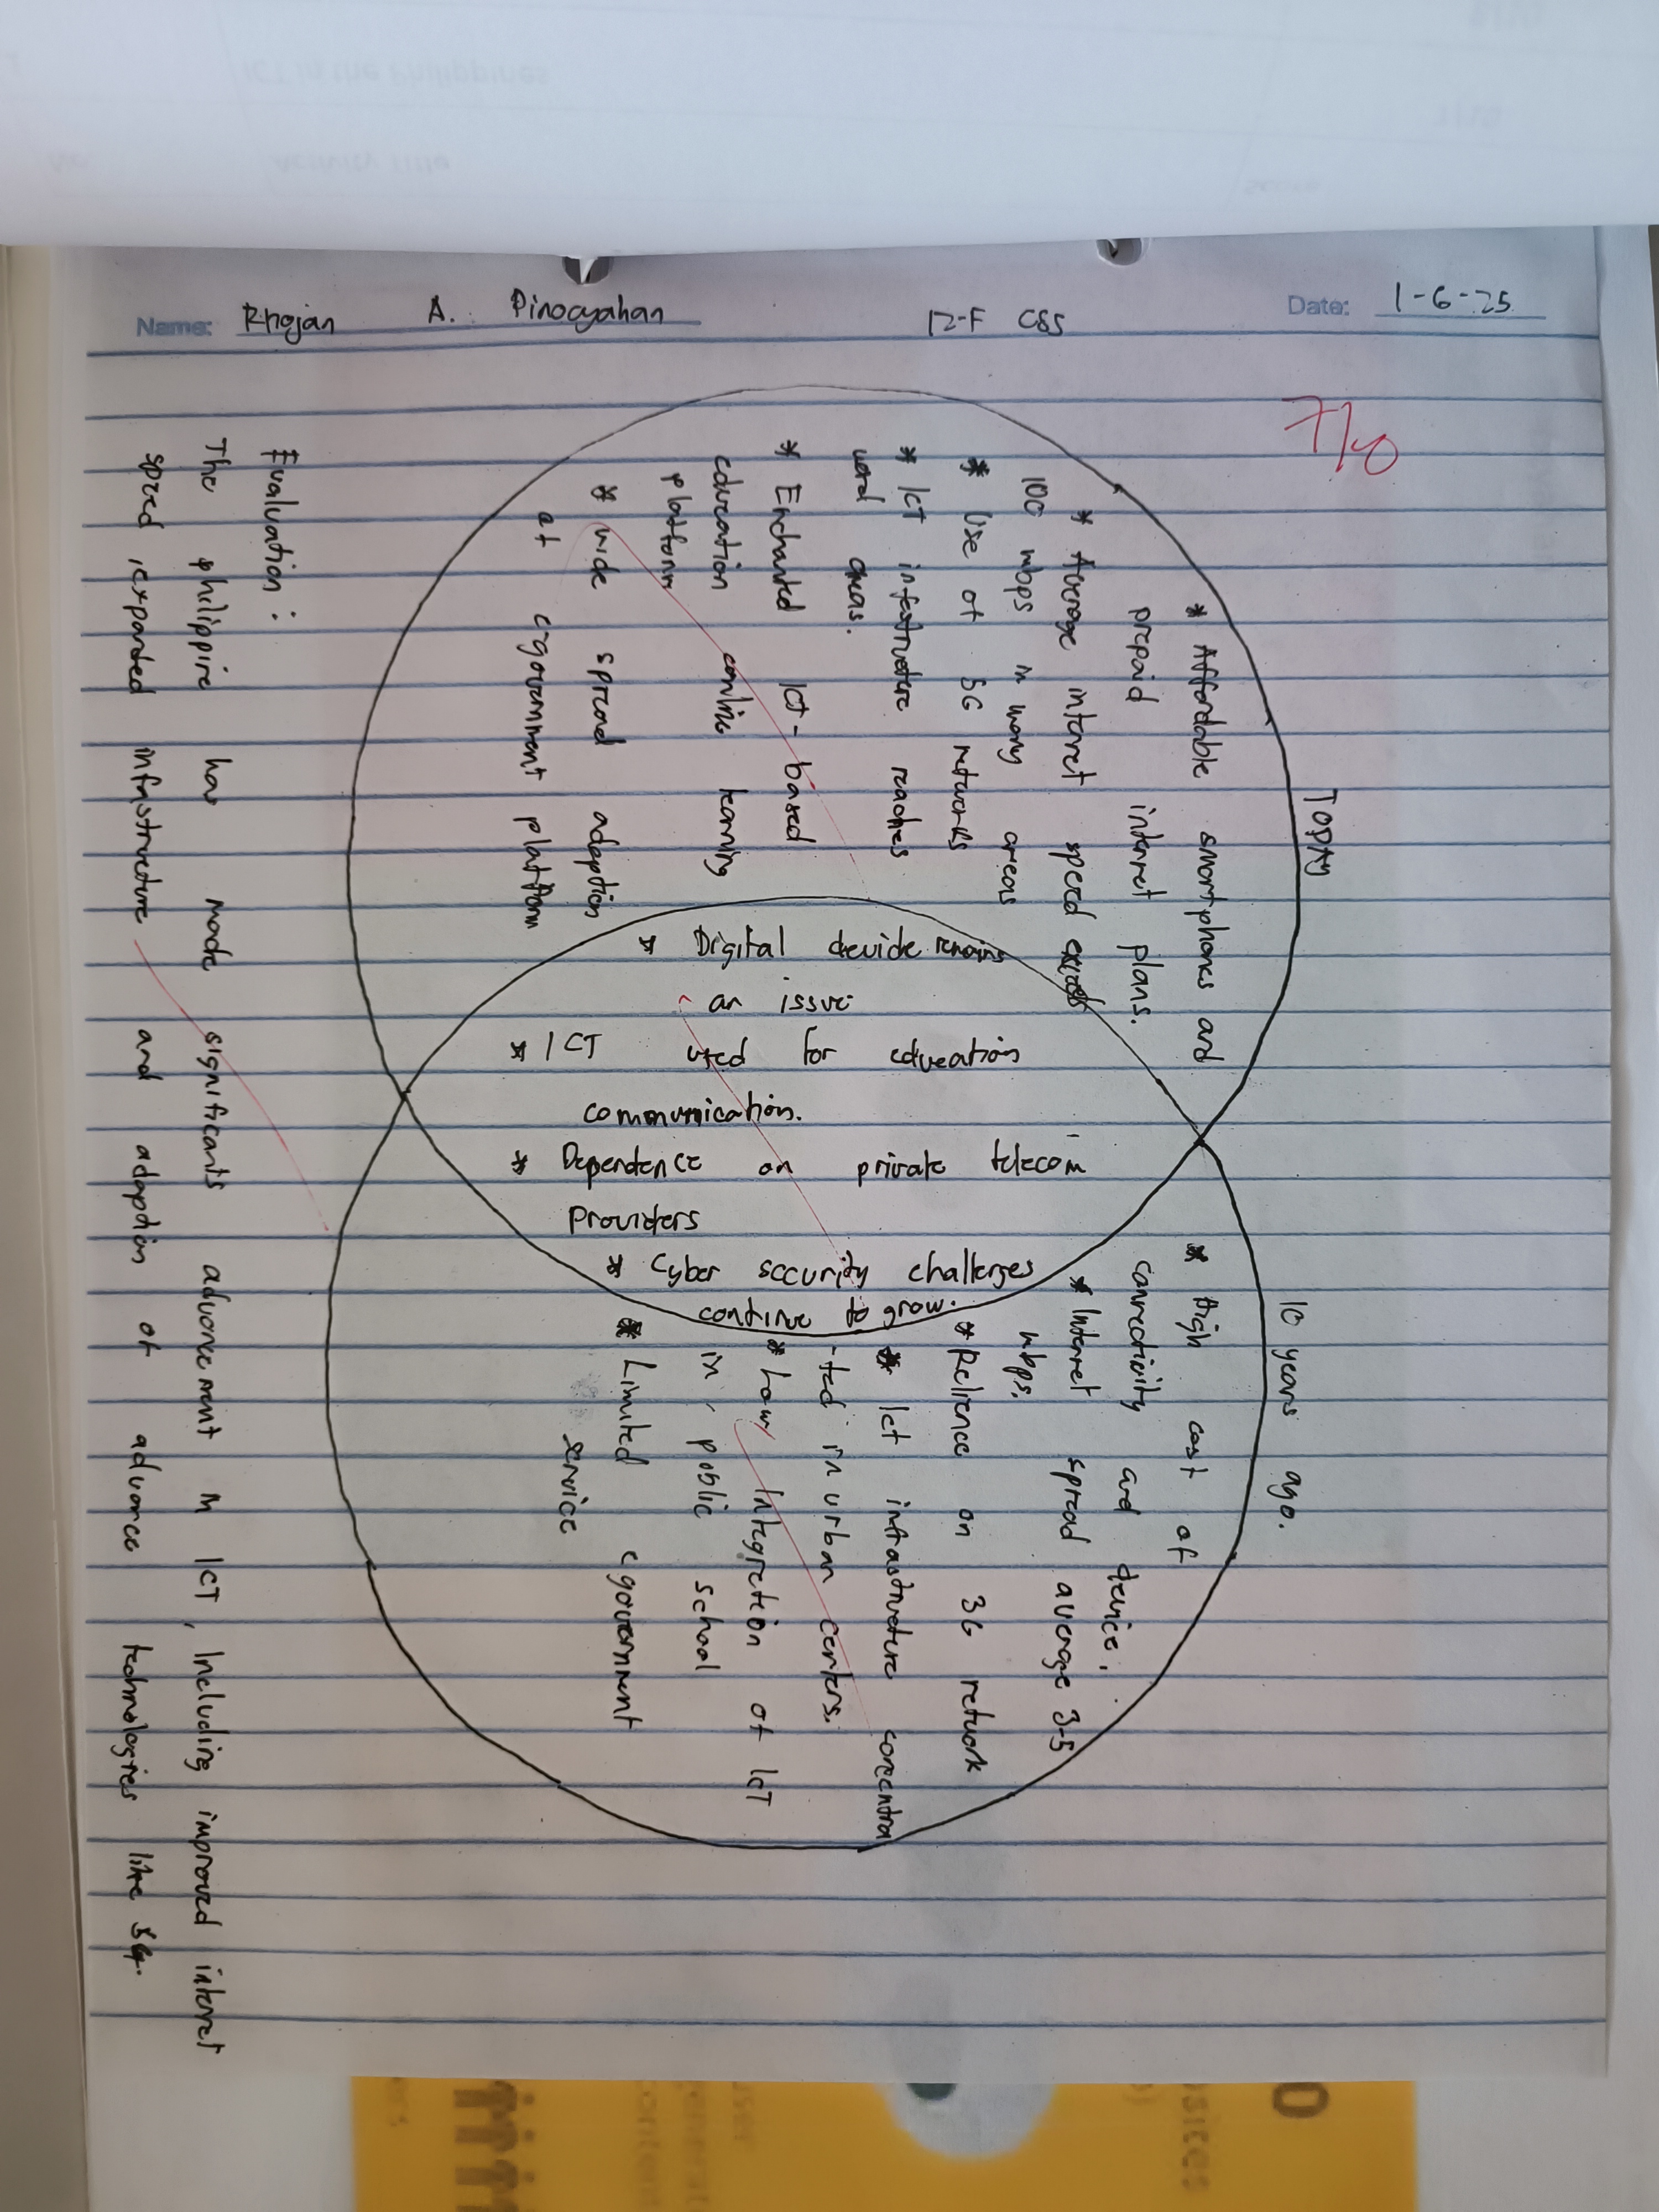 Name: Rhojan A. Pinocyahan 12-F CSS Date: 1-6-25
7/10
TODAY
* Affordable smartphones and
prepaid internet plans.
* Average internet speed
100 mbps in many areas
* Use of 5G networks
* ICT infastructere reaches
areas.
* Enchanted ICT-based
education online learning
platform
* wide spread adoption
at e-government platform
* Digital devide remains
an issue
* ICT used for education
communication.
* Dependence on private telecom
Providers
* Cyber security challenges
continue to grow.
10 years ago.
* High cost of
connectivity and device.
* Internet spread average 3-5
mbps.
* Relience on 3G network
* Ict infrastructure concentra
-ted in urban centers.
* Low Integretion of ICT
in public school
* Limited e government
service
Evaluation:
The philippine has made significants advancement in ICT, Including improved internet
speed expanded infrastructure and adoption of advance technologies like 5G.
ICT in the Philippines
Activity Title
Score
user
generated
content
sites